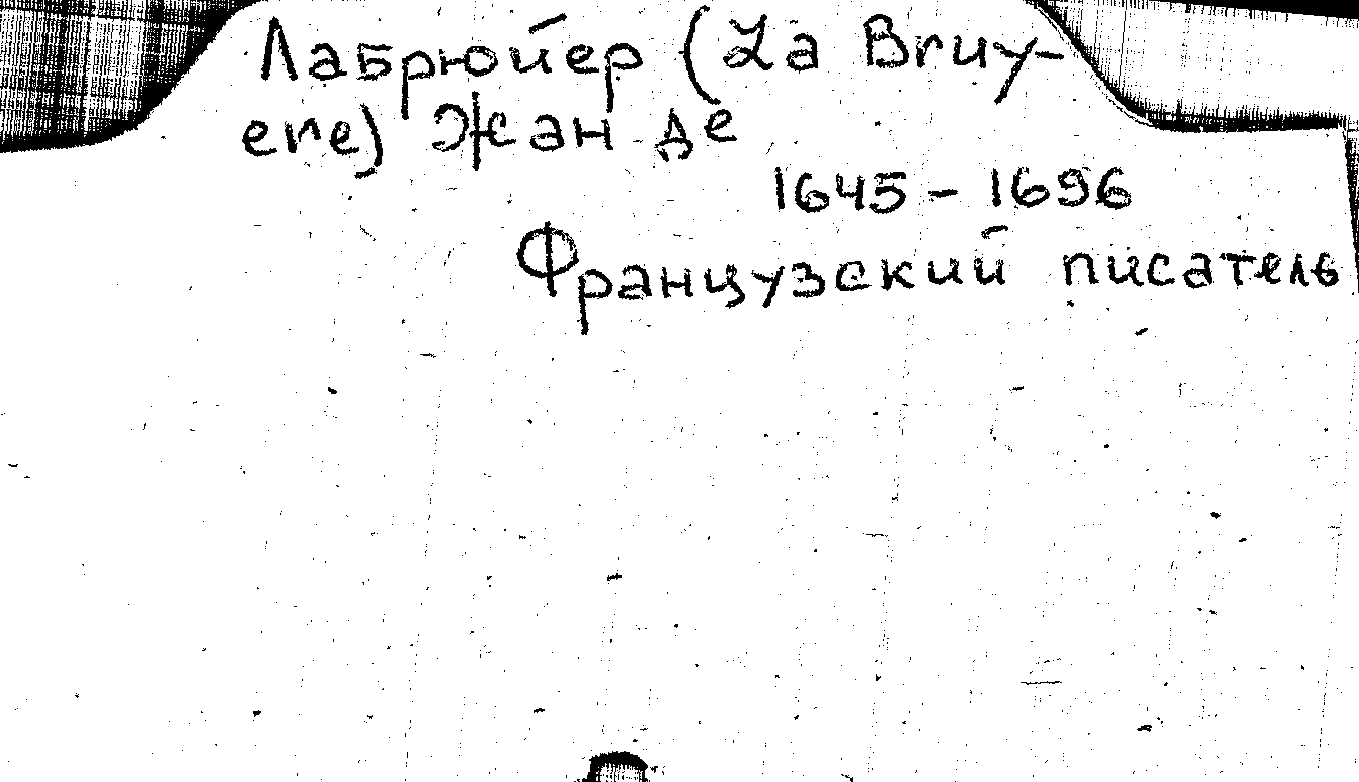 Лабрюйер (La Bruy-
ere) Жан де
1645 - 1696
Французский писатель